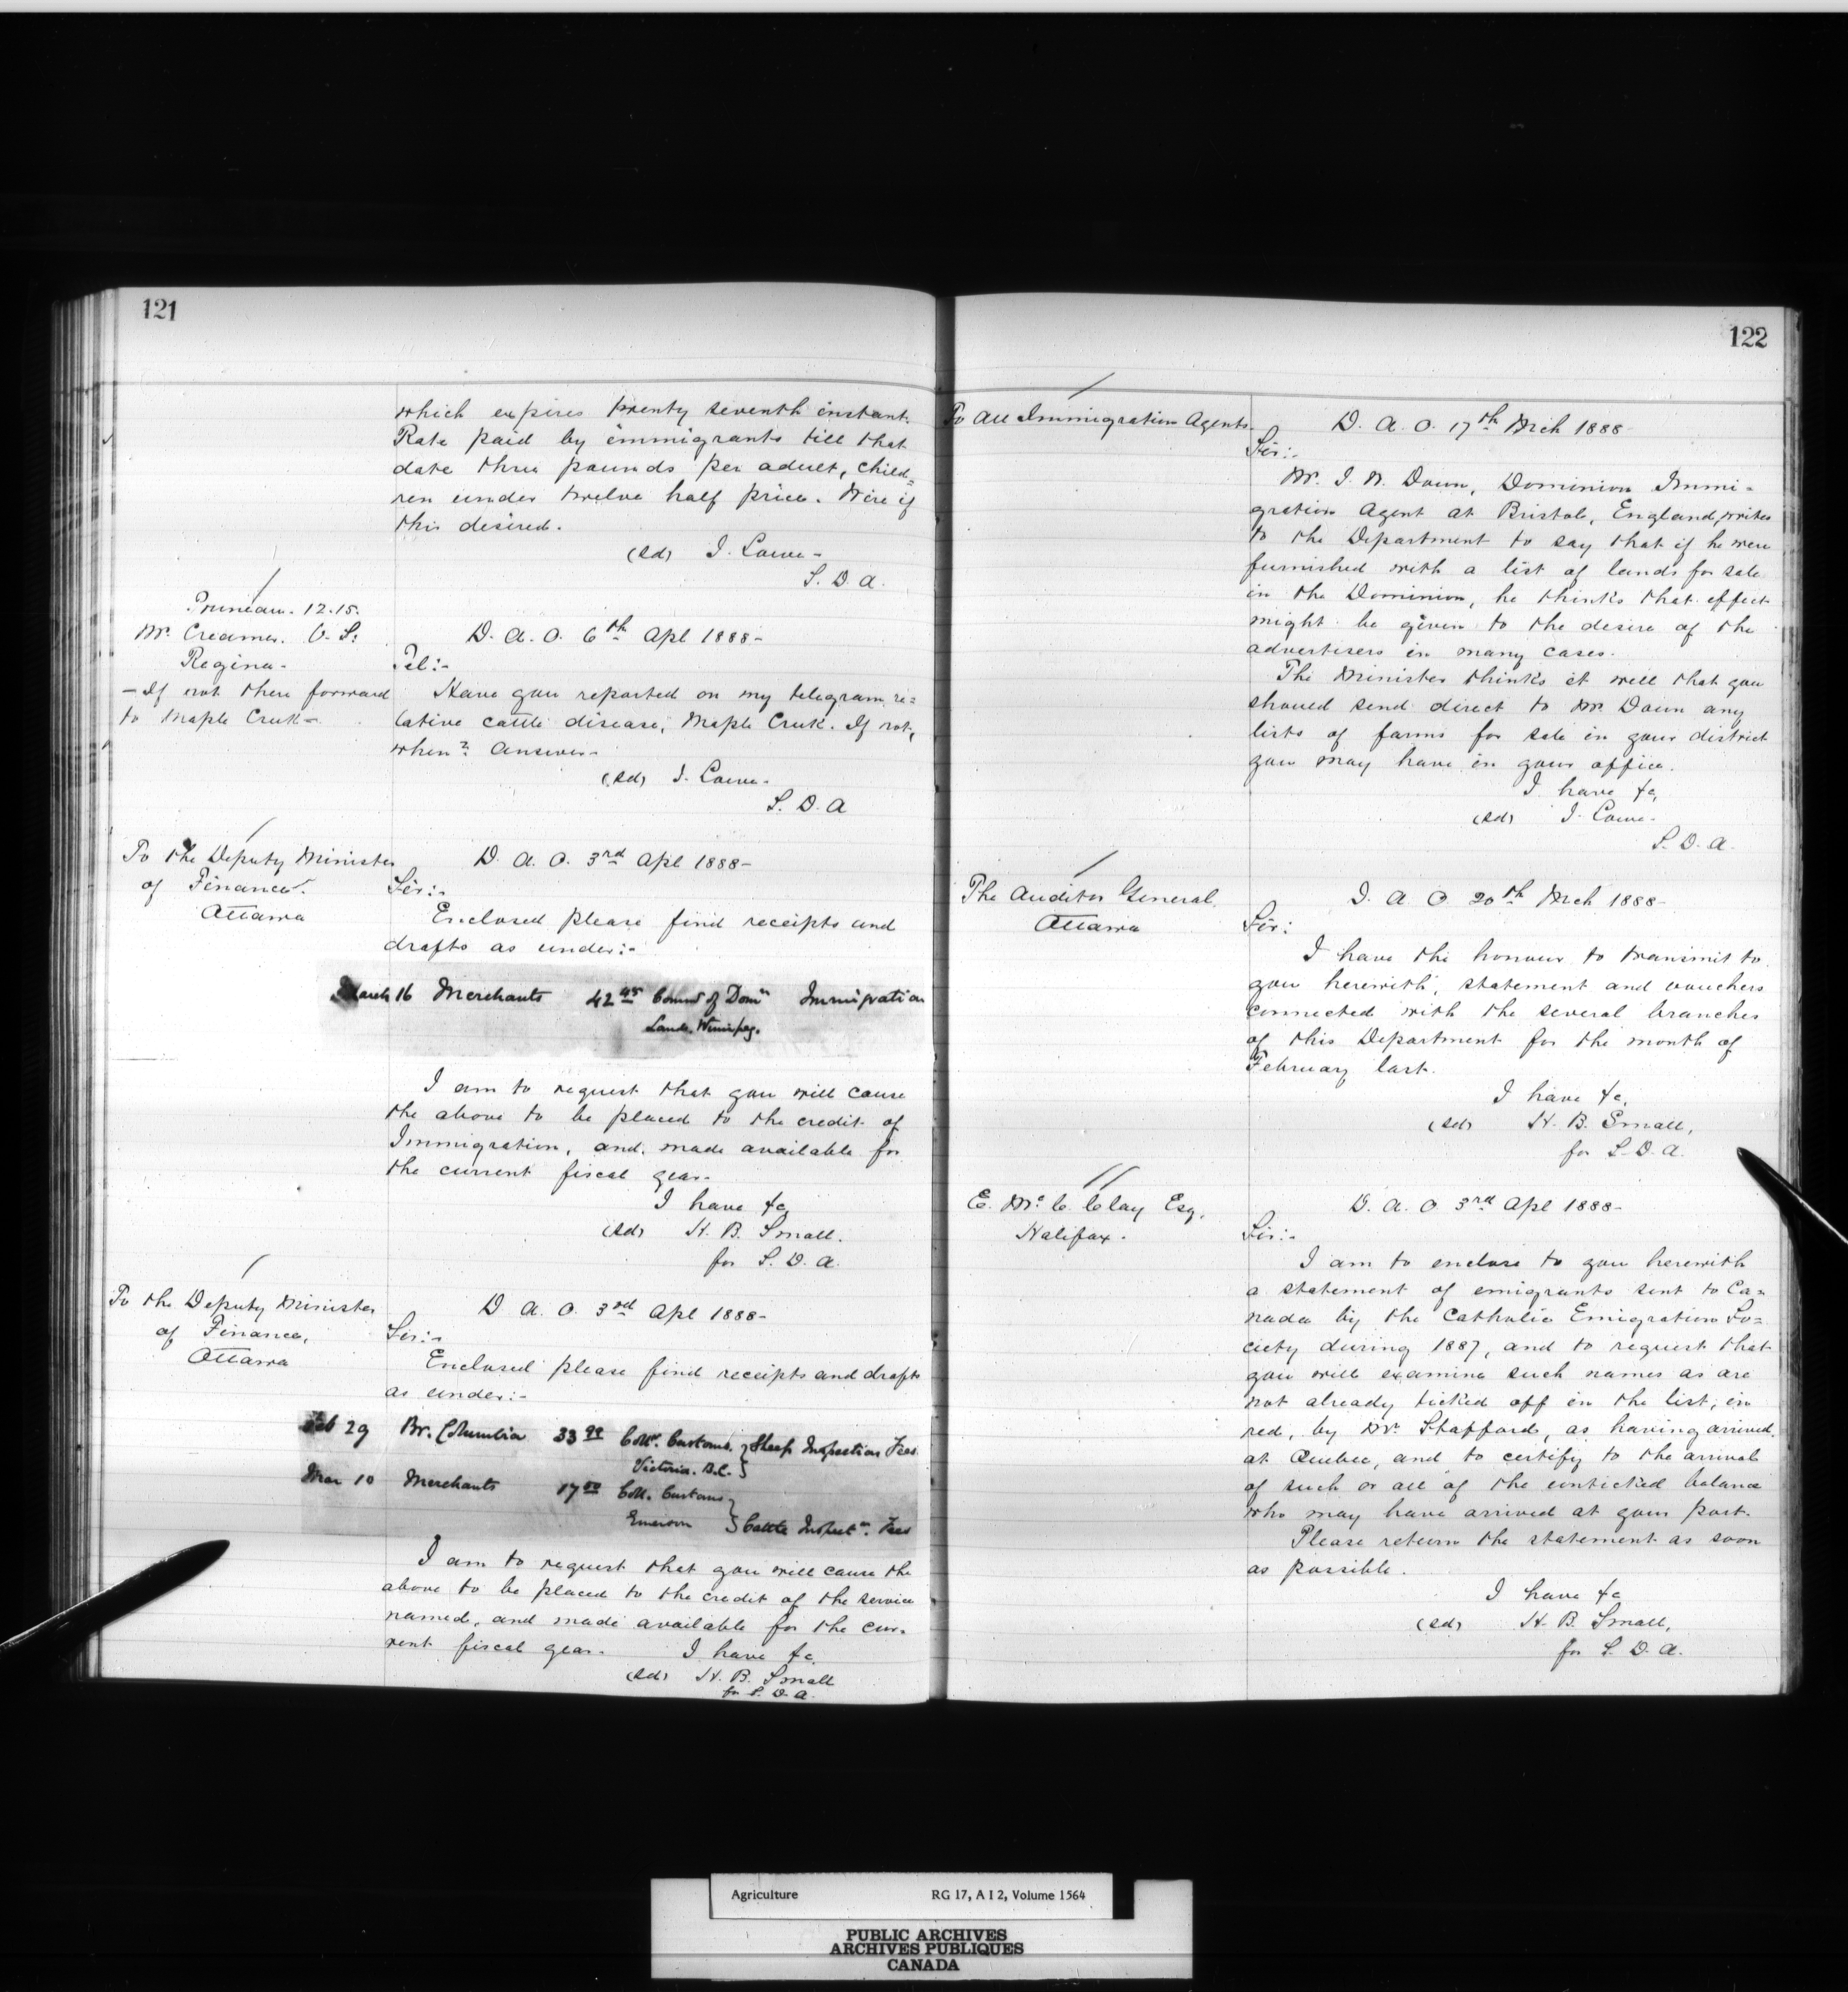 121
which expires twenty seventh instant.
Rate paid by immigrants till that
date three pounds per adult, child=
ren under twelve half price. Wire if
this desired.
(sd) J. Lowe-
S. D. A.
12.15.
Mr. Creamer. V. S:
Regina-
- If not there forward
to Maple Creek-
D. A. O. 6th Apl 1888-
Tel:-
Have you reported on my telegram re=
lative cattle disease, Maple Creek. If not,
when? Answer-
(sd) J. Lowe-
S. D. A
To the Deputy Minister
of Finance.
Ottawa
D. A. O. 3rd Apl 1888-
Sir:-
Enclosed please find receipts and
drafts as under:-
March 16 Merchants 42 45 Commr of Domn Immigration
Lands. Winnipeg.
I am to request that you will cause
the above to be placed to the credit of
Immigration, and made available for
the current fiscal year-
I have &c,
(sd) H. B. Small.
for S. D. A.
To the Deputy Minister
of Finance,
Ottawa
D. A. O. 3rd Apl 1888-
Sir:-
Enclosed please find receipts and drafts
as under:-
Feb 29 Br. Columbia 33 Collr. Customs. } Sheep Inspection Fees
Victoria. B.C. }
Mar 10 Merchants 17 00 Coll. Customs }
Emerson } Cattle Inspectn. Fees
I am to request that you will cause the
above to be placed to the credit of the service
named, and made available for the cur-
rent fiscal year.
I have &c.
(sd) H. B. Small
for S. D. A.
122
To All Immigration Agents.
D. A. O. 17th Mch 1888-
Sir:-
Mr. J. W. Down, Dominion Immi-
gration Agent at Bristol, England, writes
to the Department to say that if he were
furnished with a list of lands for sale
in the Dominion, he thinks that effect
might be given to the desire of the
advertisers in many cases.
The Minister thinks it well that you
should send direct to Mr. Down any
lists of farms for sale in your district
you may have in your office.
I have &c,
(sd) J. Lowe-
S. D. A.
The Auditor General.
Ottawa
D. A. O 20th Mch 1888-
Sir:
I have the honour to transmit to
you herewith, statement and vouchers
connected with the several branches
of this Department for the month of
February last.
I have &c,
(sd) H. B. Small,
for S. D. A.
E. Mc C. Clay Esq.
Halifax.
D. A. O 3rd Apl 1888-
Sir:-
I am to enclose to you herewith
a statement of emigrants sent to Ca=
nada by the Catholic Emigration So=
ciety during 1887, and to request that
you will examine such names as are
not already ticked off in the list, in
red, by Mr. Stafford, as having arrived
at Quebec, and to certify to the arrival
of such or all of the unticked balance
who may have arrived at your port.
Please return the statement as soon
as possible.
I have &c
(sd) H. B. Small,
for S. D. A.
Agriculture RG 17, A I 2, Volume 1564
PUBLIC ARCHIVES
ARCHIVES PUBLIQUES
CANADA